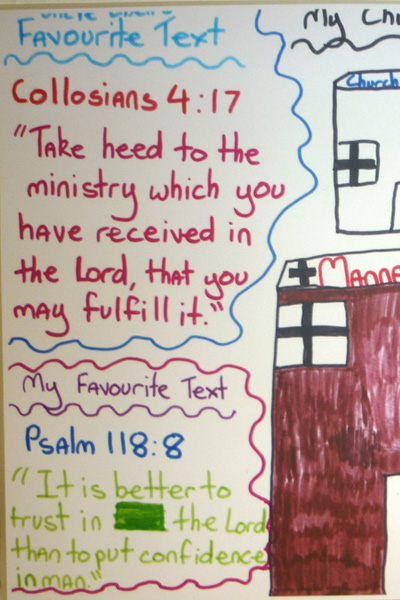 Favourite Text
Collosians 4:17
"Take heed to the
ministry which you
have received in
the Lord, that you
may fulfill it."
My Favourite Text
Psalm 118:8
"It is better to
trust in the Lord
than to put confidence
in man."
My
Church